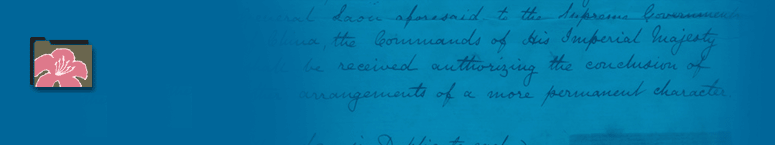 eral Kaon aforesaid to the Supreme Government
the Commands of His Imperial Majesty
be received authorizing the conclusion of
arrangements of a more permanent character
in Duplicate